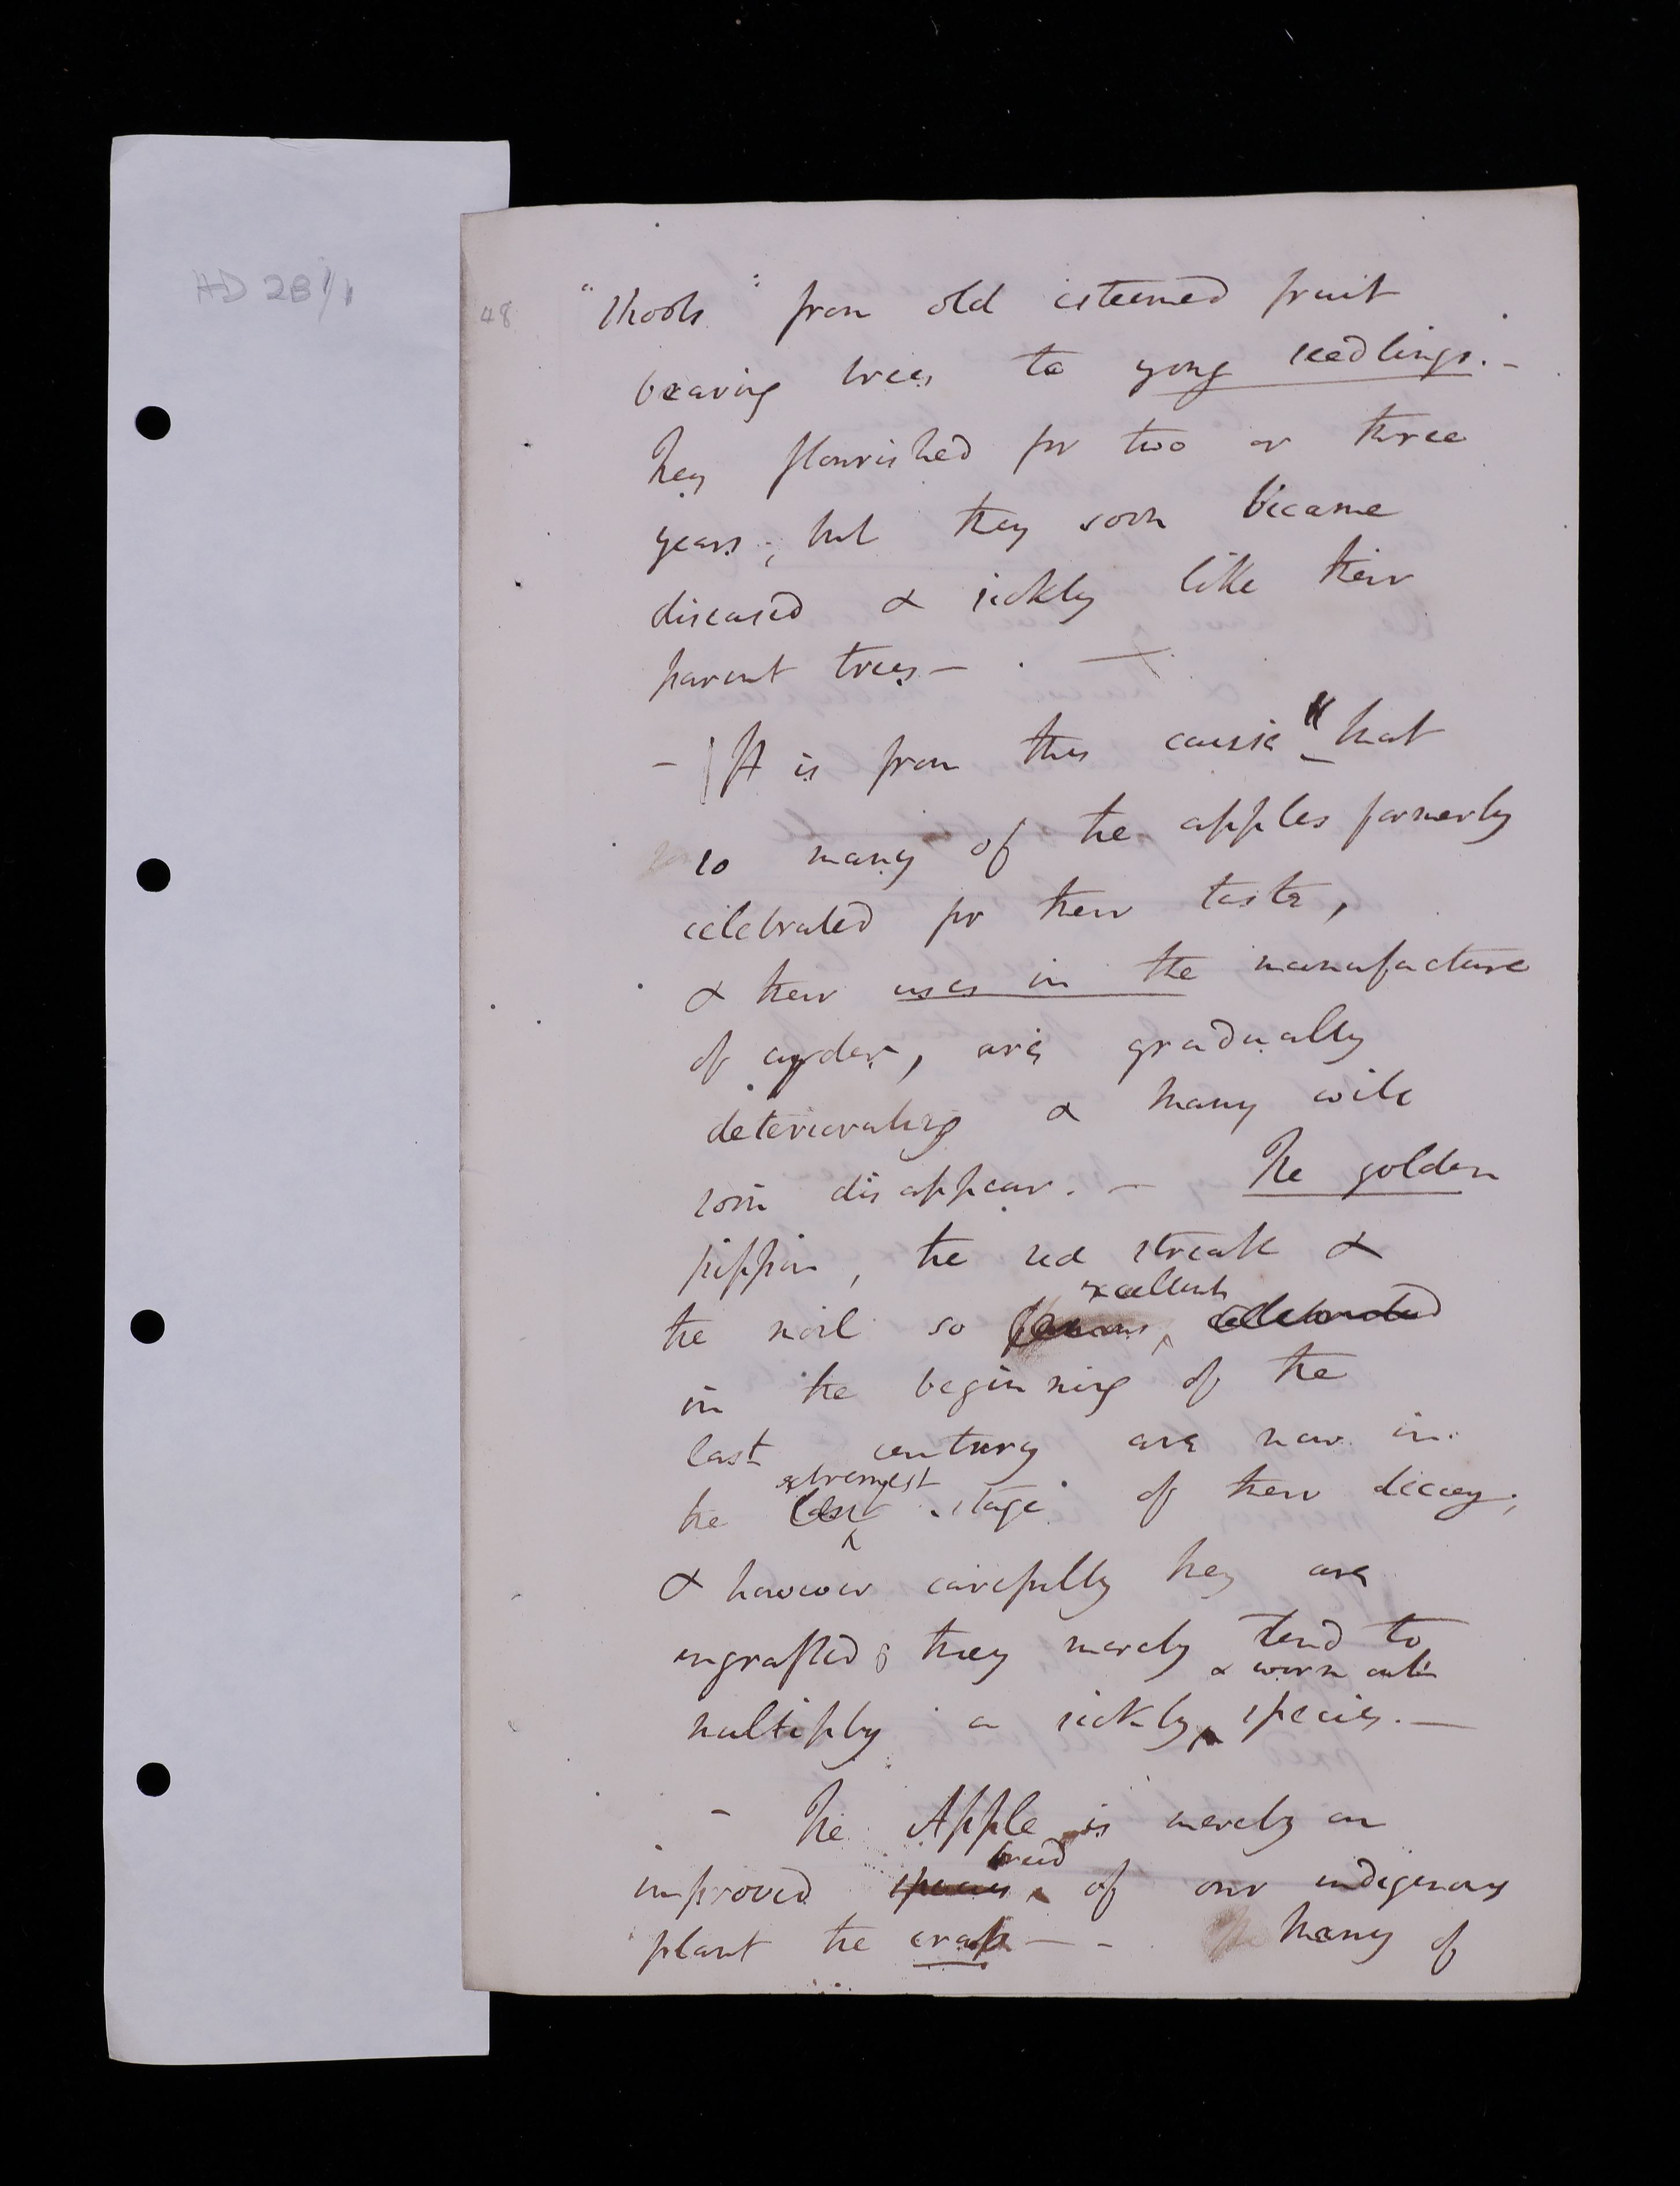 HD 2B/1
48
"shoots" from old esteemed fruit
bearing trees to yong seedlings. -
They flourished for two or three
years; but they soon became
diseased & sickly like their
parent trees -
- It is from this cause "that
so many of the apples formerly
celebrated for their taste,
& their uses in the manufacture
of cyder, are gradually
deteriorating & many will
soon disappear. - The golden
pippin, the red streak &
excellent
the moil so famous, celebrated
in the beginning of the
last century are now in
extremest
the last stage of their decay;
& however carefully they are
engrafted they merely tend to
& worn out
multiply a sickly species. -
- The Apple is merely an
breed
improved species of our indigenous
plant the crab - - Many of